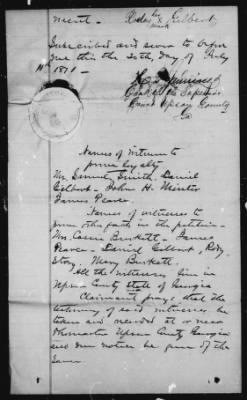 ment. Gilbert
mark
Subscribed and sworn to before
me this the 20th day of July
1871
Clerk of Superior
Court Upson County
Ga
Names of Witnesses to
prove loyalty
Mr. Samuel Smith, Daniel
Gilbert - John H. Minter
James Pearce.
Names of witnesses to
prove other facts in the petition -
Mrs. Cassie Burkett - James
Pearce - Daniel Gilbert,
Story. Mary Burkett.
All the witnesses live in
Upson County State of Georgia
Claimant prays that the
testimony of said witnesses be
taken and recorded at or near
Thomaston Upson County Georgia
and due notice be given of the
same